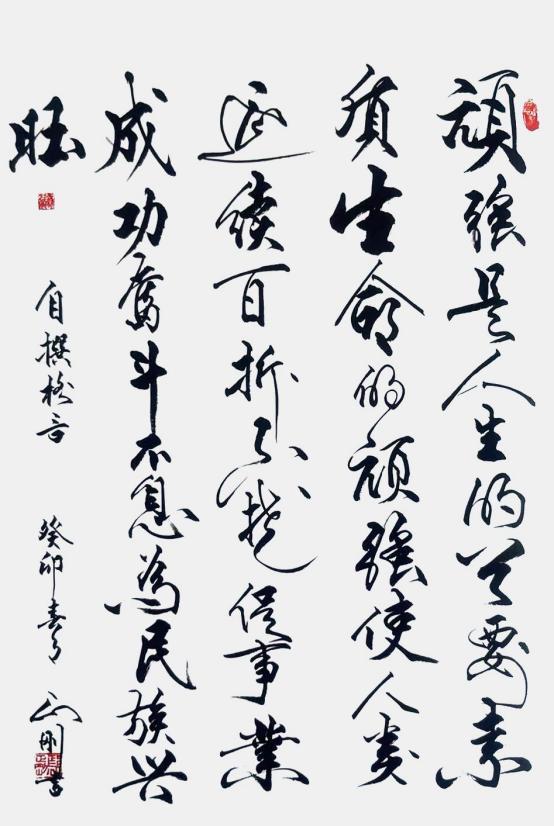 頑強是人生的要素
質生命的頑強使人类
延續百折不撓促事業
成功奮斗不息為民族兴
旺
自撰格言 癸卯春月 剛書